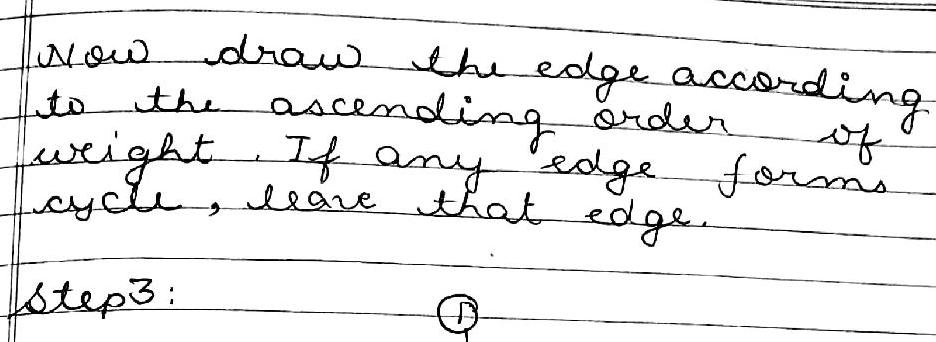 Now draw the edge according
to the ascending order of
weight. If any edge forms
cycle, leave that edge.
Step3: